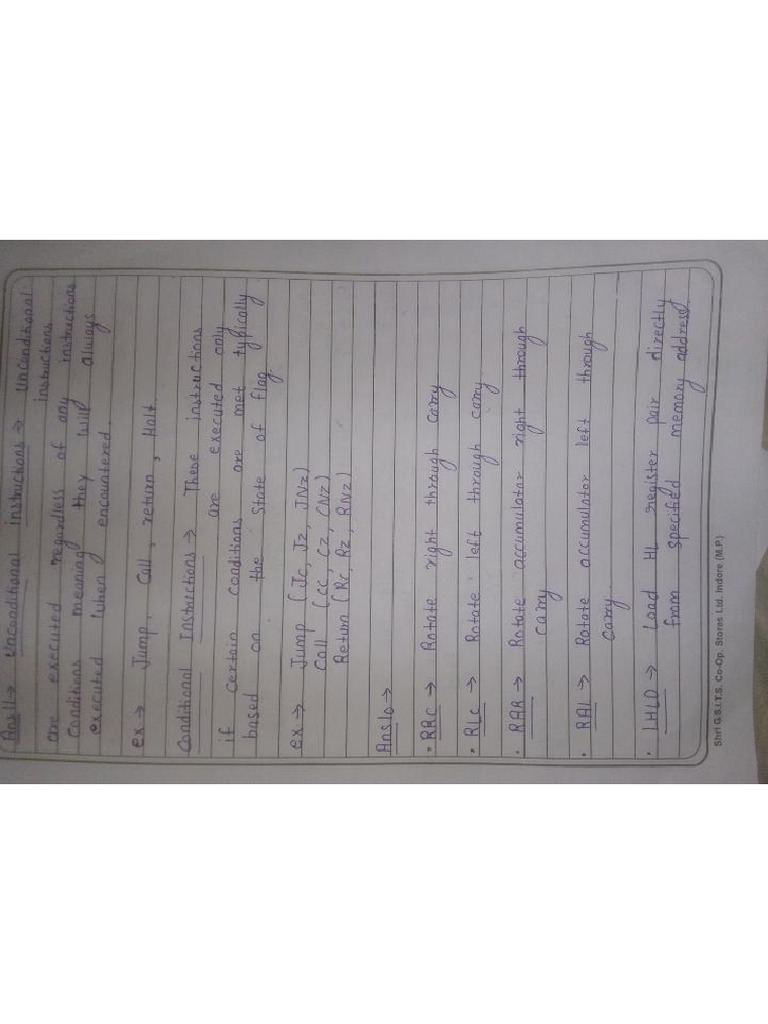 Ans11→ Unconditional instructions → Unconditional
instructions
are executed regardless of any instructions
Conditions meaning they will always
executed when encountered.
ex → Jump, Call, return, Halt.
Conditional Instructions → These instructions
are executed only
if certain conditions are met typically
based on the state of flag
ex → Jump (JC, JZ, JNZ)
Call (CC, CZ, CNZ)
Return (RC, RZ, RNZ)
Ans10→
• RRC → Rotate right through carry
• RLC → Rotate left through carry
• RAR → Rotate accumulator right through
carry
• RAL → Rotate accumulator left through
carry.
• LHLD → Load HL register pair directly
from specified memory address.
Shri G.S.I.T.S. Co-Op. Stores Ltd. Indore (M.P.)